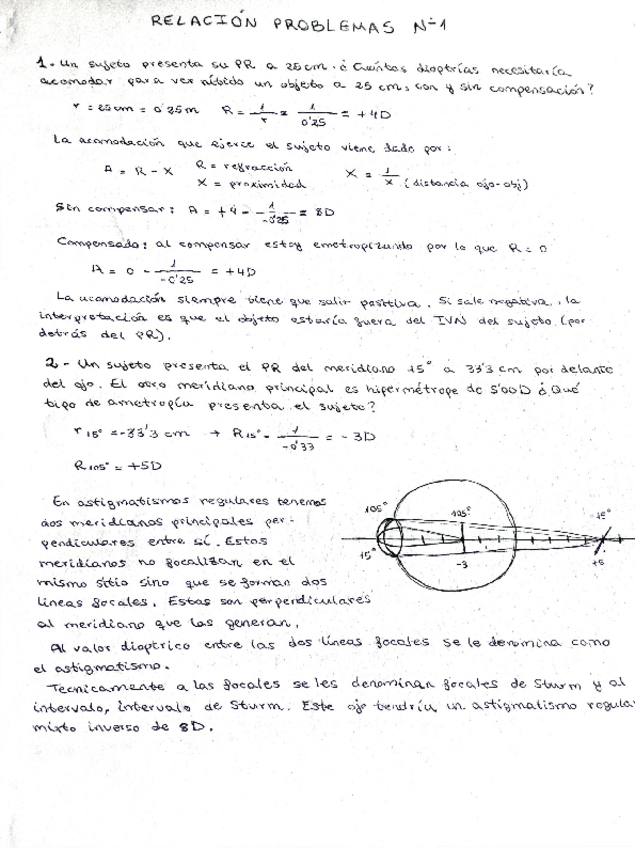 RELACIÓN PROBLEMAS Nº1
1.- Un sujeto presenta su PR a 25 cm. ¿Cuántos dioptrías necesitaría
acomodar para ver nítido un objeto a 25 cms, con y sin compensación?
r = 25cm = 0'25m R = 1/r = 1/0'25 = +4D
La acomodación que ejerce el sujeto viene dado por:
A = R - X R = refracción X = 1/x (distancia ojo-obj)
X = proximidad
Sin compensar: A = +4 - 1/-0'25 = 8D
Compensado: al compensar estoy emetropizando por lo que R = 0
A = 0 - 1/-0'25 = +4D
La acomodación siempre tiene que salir positiva. Si sale negativa, la
interpretación es que el objeto estaría fuera del IVN del sujeto (por
detrás del PR).
2.- Un sujeto presenta el PR del meridiano 15° a 33'3 cm por delante
del ojo. El otro meridiano principal es hipermétrope de 5'00D ¿Qué
tipo de ametropía presenta el sujeto?
r 15° = -33'3 cm → R 15° = 1/-0'33 = -3D
R 105° = +5D
En astigmatismos regulares tenemos
dos meridianos principales per-
pendiculares entre sí. Estos
meridianos no focalizan en el
mismo sitio sino que se forman dos
líneas focales. Estas son perpendiculares
al meridiano que las generan.
105°
15°
105°
-3
15°
+5
Al valor dioptrico entre las dos líneas focales se le denomina como
el astigmatismo.
Tecnicamente a las focales se les denominan focales de Sturm y al
intervalo, intervalo de Sturm. Este ojo tendría un astigmatismo regula
mixto inverso de 8D.